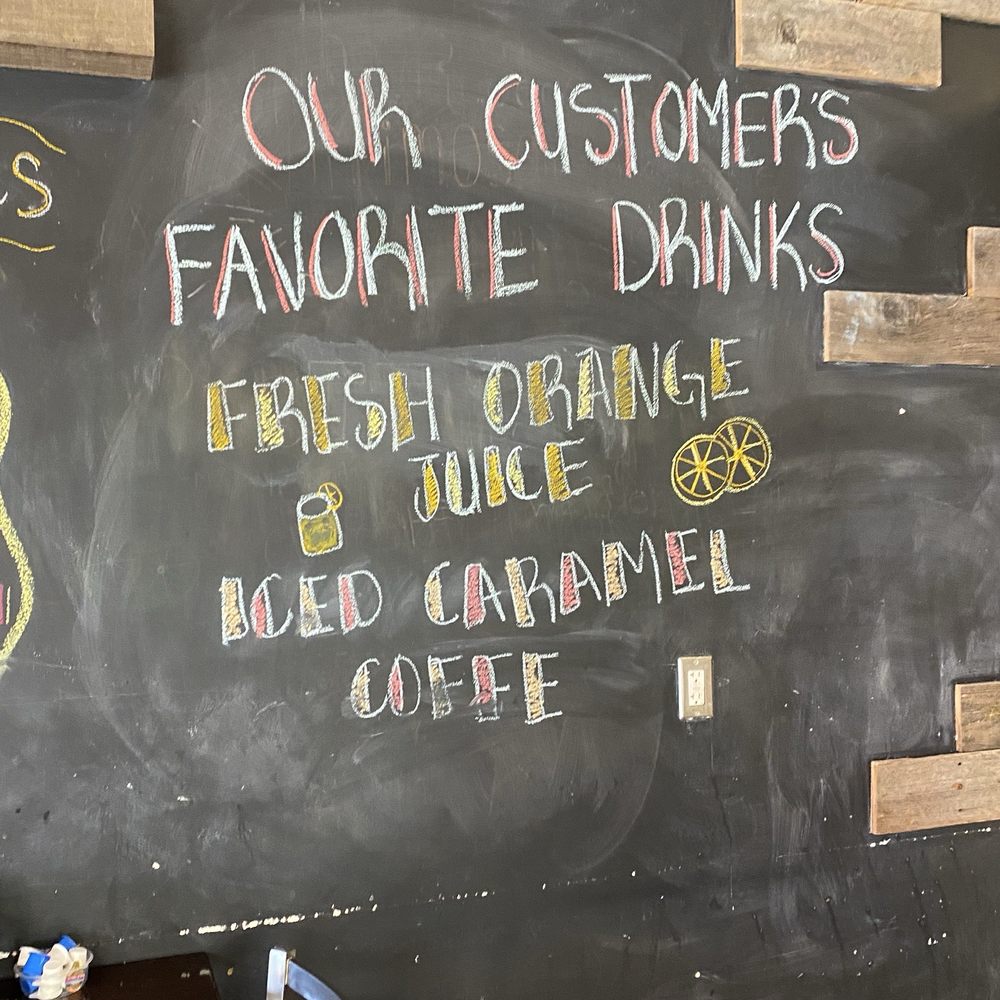 OUR CUSTOMER'S
FAVORITE DRINKS
FRESH ORANGE
JUICE
ICED CARAMEL
COFFEE